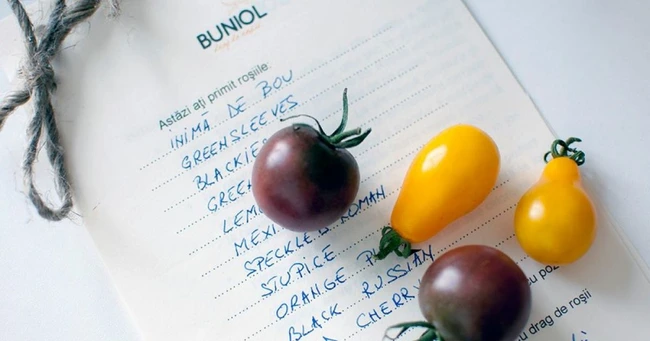 BUNIOL
Astăzi ați primit roșiile:
INIMĂ DE BOU
GREENSLEEVES
BLACKIE
GREE
LEM
MEXI
SPECKLED ROMAN
STUPICE
ORANGE P
BLACK RUSSIAN
CHERRY
drag de roșii